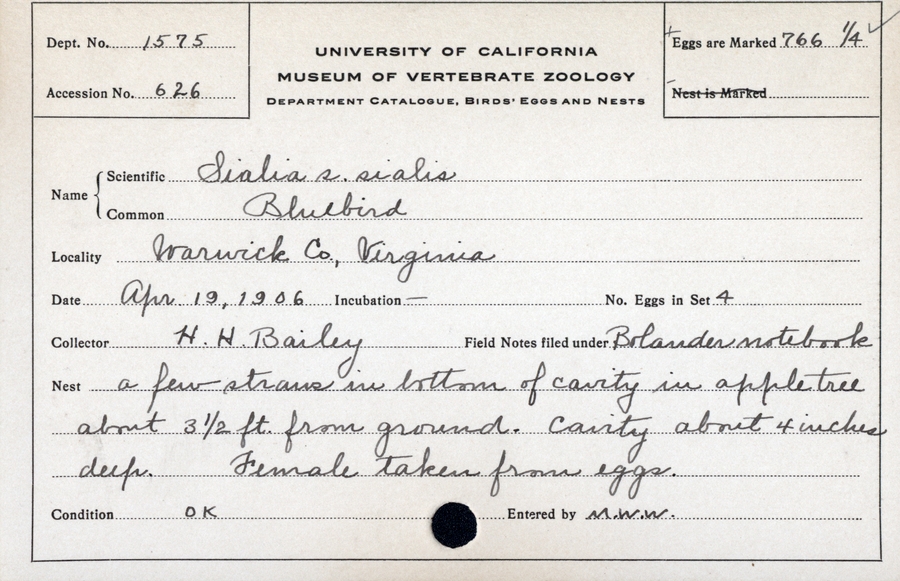 Dept. No. 1575
Accession No. 626
UNIVERSITY OF CALIFORNIA
MUSEUM OF VERTEBRATE ZOOLOGY
DEPARTMENT CATALOGUE, BIRDS' EGGS AND NESTS
Eggs are Marked 766 1/4
Nest is Marked
Name
Scientific Sialia s. sialis
Common Bluebird
Locality Warwick Co., Virginia
Date Apr 19, 1906 Incubation — No. Eggs in Set 4
Collector H. H. Bailey Field Notes filed under Bolander notebook
Nest a few straws in bottom of cavity in apple tree
about 3 1/2 ft. from ground. Cavity about 4 inches
deep. Female taken from eggs.
Condition OK Entered by M.W.W.